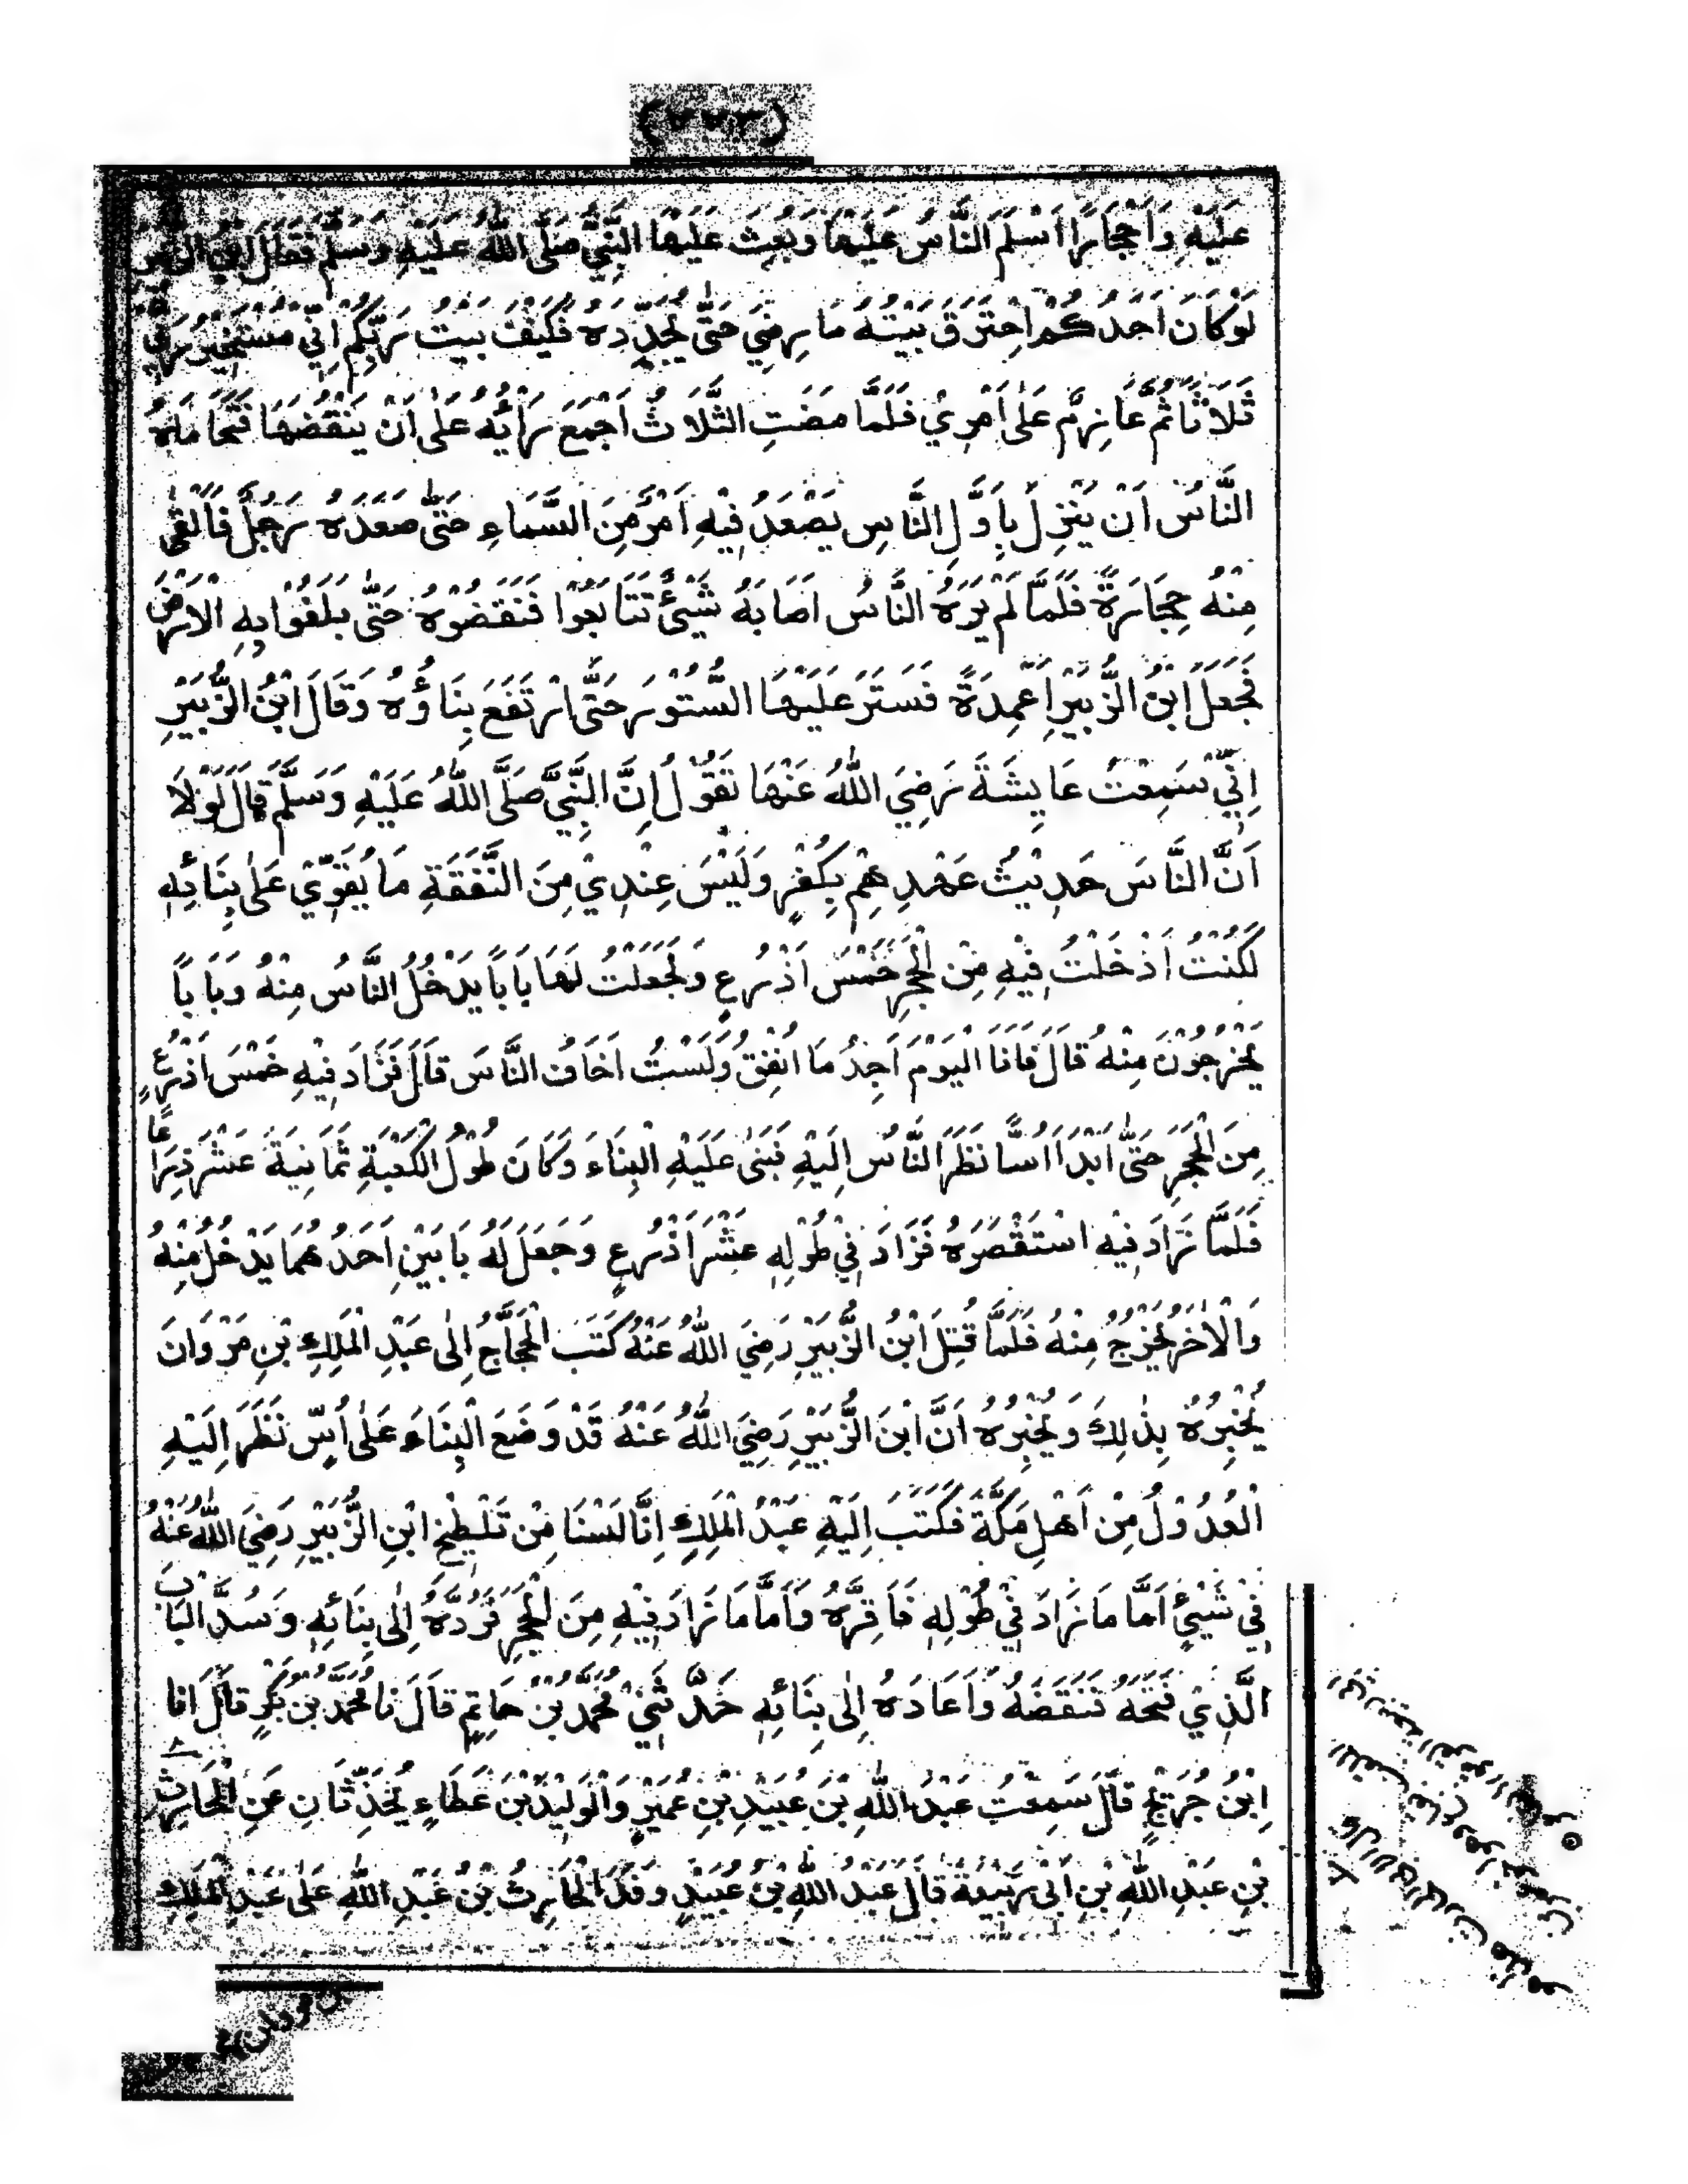 عَلَيْهِ وَاَحْجَارًا اَسْلَمَ النَّاسُ عَلَيْهَا وَبُعِثَ عَلَيْهَا النَّبِيُّ صَلَّى اللّٰهُ عَلَيْهِ وَسَلَّمَ فَقَالَ ابْنُ الزُّبَيْرِ
لَوْ كَانَ اَحَدُكُمْ اِحْتَرَقَ بَيْتُهُ مَا رَضِيَ حَتّٰى يُجَدِّدَهُ فَكَيْفَ بَيْتُ رَبِّكُمْ اِنِّي مُسْتَخِيْرٌ رَبِّيْ
ثَلَاثًا ثُمَّ عَازِمٌ عَلٰى اَمْرِيْ فَلَمَّا مَضَتِ الثَّلَاثُ اَجْمَعَ رَاْيَهُ عَلٰى اَنْ يَنْقُضَهَا فَتَحَامَاهُ
النَّاسُ اَنْ يَنْزِلَ بِاَوَّلِ النَّاسِ يَصْعَدُ فِيْهِ اَمْرٌ مِنَ السَّمَاءِ حَتّٰى صَعَدَهُ رَجُلٌ فَاَلْقٰى
مِنْهُ حِجَارَةً فَلَمَّا لَمْ يَرَهُ النَّاسُ اَصَابَهُ شَيْئٌ تَتَابَعُوْا فَنَقَضُوْهُ حَتّٰى بَلَغُوْا بِهِ الْاَرْضَ
فَجَعَلَ ابْنُ الزُّبَيْرِ اَعْمِدَةً فَسَتَرَ عَلَيْهَا السُّتُوْرَ حَتَّى ارْتَفَعَ بِنَاؤُهُ وَقَالَ ابْنُ الزُّبَيْرِ
اِنِّيْ سَمِعْتُ عَايِشَةَ رَضِيَ اللّٰهُ عَنْهَا تَقُوْلُ اِنَّ النَّبِيَّ صَلَّى اللّٰهُ عَلَيْهِ وَسَلَّمَ قَالَ لَوْلَا
اَنَّ النَّاسَ حَدِيْثٌ عَهْدِهِمْ بِكُفْرٍ وَلَيْسَ عِنْدِيْ مِنَ النَّفَقَةِ مَا يُقَوِّيْ عَلٰى بِنَائِهِ
لَكُنْتُ اَدْخَلْتُ فِيْهِ مِنَ الْحِجْرِ خَمْسَ اَذْرُعٍ وَلَجَعَلْتُ لَهَا بَابًا يَدْخُلُ النَّاسُ مِنْهُ وَبَابًا
يَخْرُجُوْنَ مِنْهُ قَالَ فَاَنَا الْيَوْمَ اَجِدُ مَا اُنْفِقُ وَلَسْتُ اَخَافُ النَّاسَ قَالَ فَزَادَ فِيْهِ خَمْسَ اَذْرُعٍ
مِنَ الْحِجْرِ حَتّٰى اَبْدَا اُسًّا نَظَرَ النَّاسُ اِلَيْهِ فَبَنٰى عَلَيْهِ الْبِنَاءَ وَكَانَ طُوْلُ الْكَعْبَةِ ثَمَانِيَةَ عَشْرَ ذِرَاعًا
فَلَمَّا زَادَ فِيْهِ اسْتَقْصَرَهُ فَزَادَ فِيْ طُوْلِهِ عَشْرَ اَذْرُعٍ وَجَعَلَ لَهُ بَابَيْنِ اَحَدُهُمَا يَدْخُلُ مِنْهُ
وَالْاٰخَرُ يُخْرَجُ مِنْهُ فَلَمَّا قُتِلَ ابْنُ الزُّبَيْرِ رَضِيَ اللّٰهُ عَنْهُ كَتَبَ الْحَجَّاجُ اِلٰى عَبْدِ الْمَلِكِ بْنِ مَرْوَانَ
يُخْبِرُهُ بِذٰلِكَ وَيُخْبِرُهُ اَنَّ ابْنَ الزُّبَيْرِ رَضِيَ اللّٰهُ عَنْهُ قَدْ وَضَعَ الْبِنَاءَ عَلٰى اُسٍّ نَظَرَ اِلَيْهِ
الْعُدُوْلُ مِنْ اَهْلِ مَكَّةَ فَكَتَبَ اِلَيْهِ عَبْدُ الْمَلِكِ اِنَّا لَسْنَا مِنْ تَلْطِيْخِ ابْنِ الزُّبَيْرِ رَضِيَ اللّٰهُ عَنْهُ
فِيْ شَيْئٍ اَمَّا مَا زَادَ فِيْ طُوْلِهِ فَاَقِرَّهُ وَاَمَّا مَا زَادَ فِيْهِ مِنَ الْحِجْرِ فَرُدَّهُ اِلٰى بِنَائِهِ وَسُدَّ الْبَابَ
الَّذِيْ فَتَحَهُ فَنَقَضَهُ وَاَعَادَهُ اِلٰى بِنَائِهِ حَدَّثَنِيْ مُحَمَّدُ بْنُ حَاتِمٍ قَالَ نَا مُحَمَّدُ بْنُ بَكْرٍ قَالَ اَنَا
اِبْنُ جُرَيْجٍ قَالَ سَمِعْتُ عَبْدَ اللّٰهِ بْنَ عُبَيْدِ بْنِ عُمَيْرٍ وَالْوَلِيْدَ بْنَ عَطَاءٍ يُحَدِّثَانِ عَنِ الْحَارِثِ
بْنِ عَبْدِ اللّٰهِ بْنِ اَبِيْ رَبِيْعَةَ قَالَ عَبْدُ اللّٰهِ بْنُ عُبَيْدٍ وَفَدَ الْحَارِثُ بْنُ عَبْدِ اللّٰهِ عَلٰى عَبْدِ الْمَلِكِ